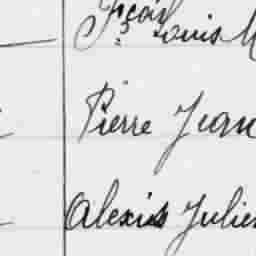 Louis
Pierre Jean
Alexis Julien